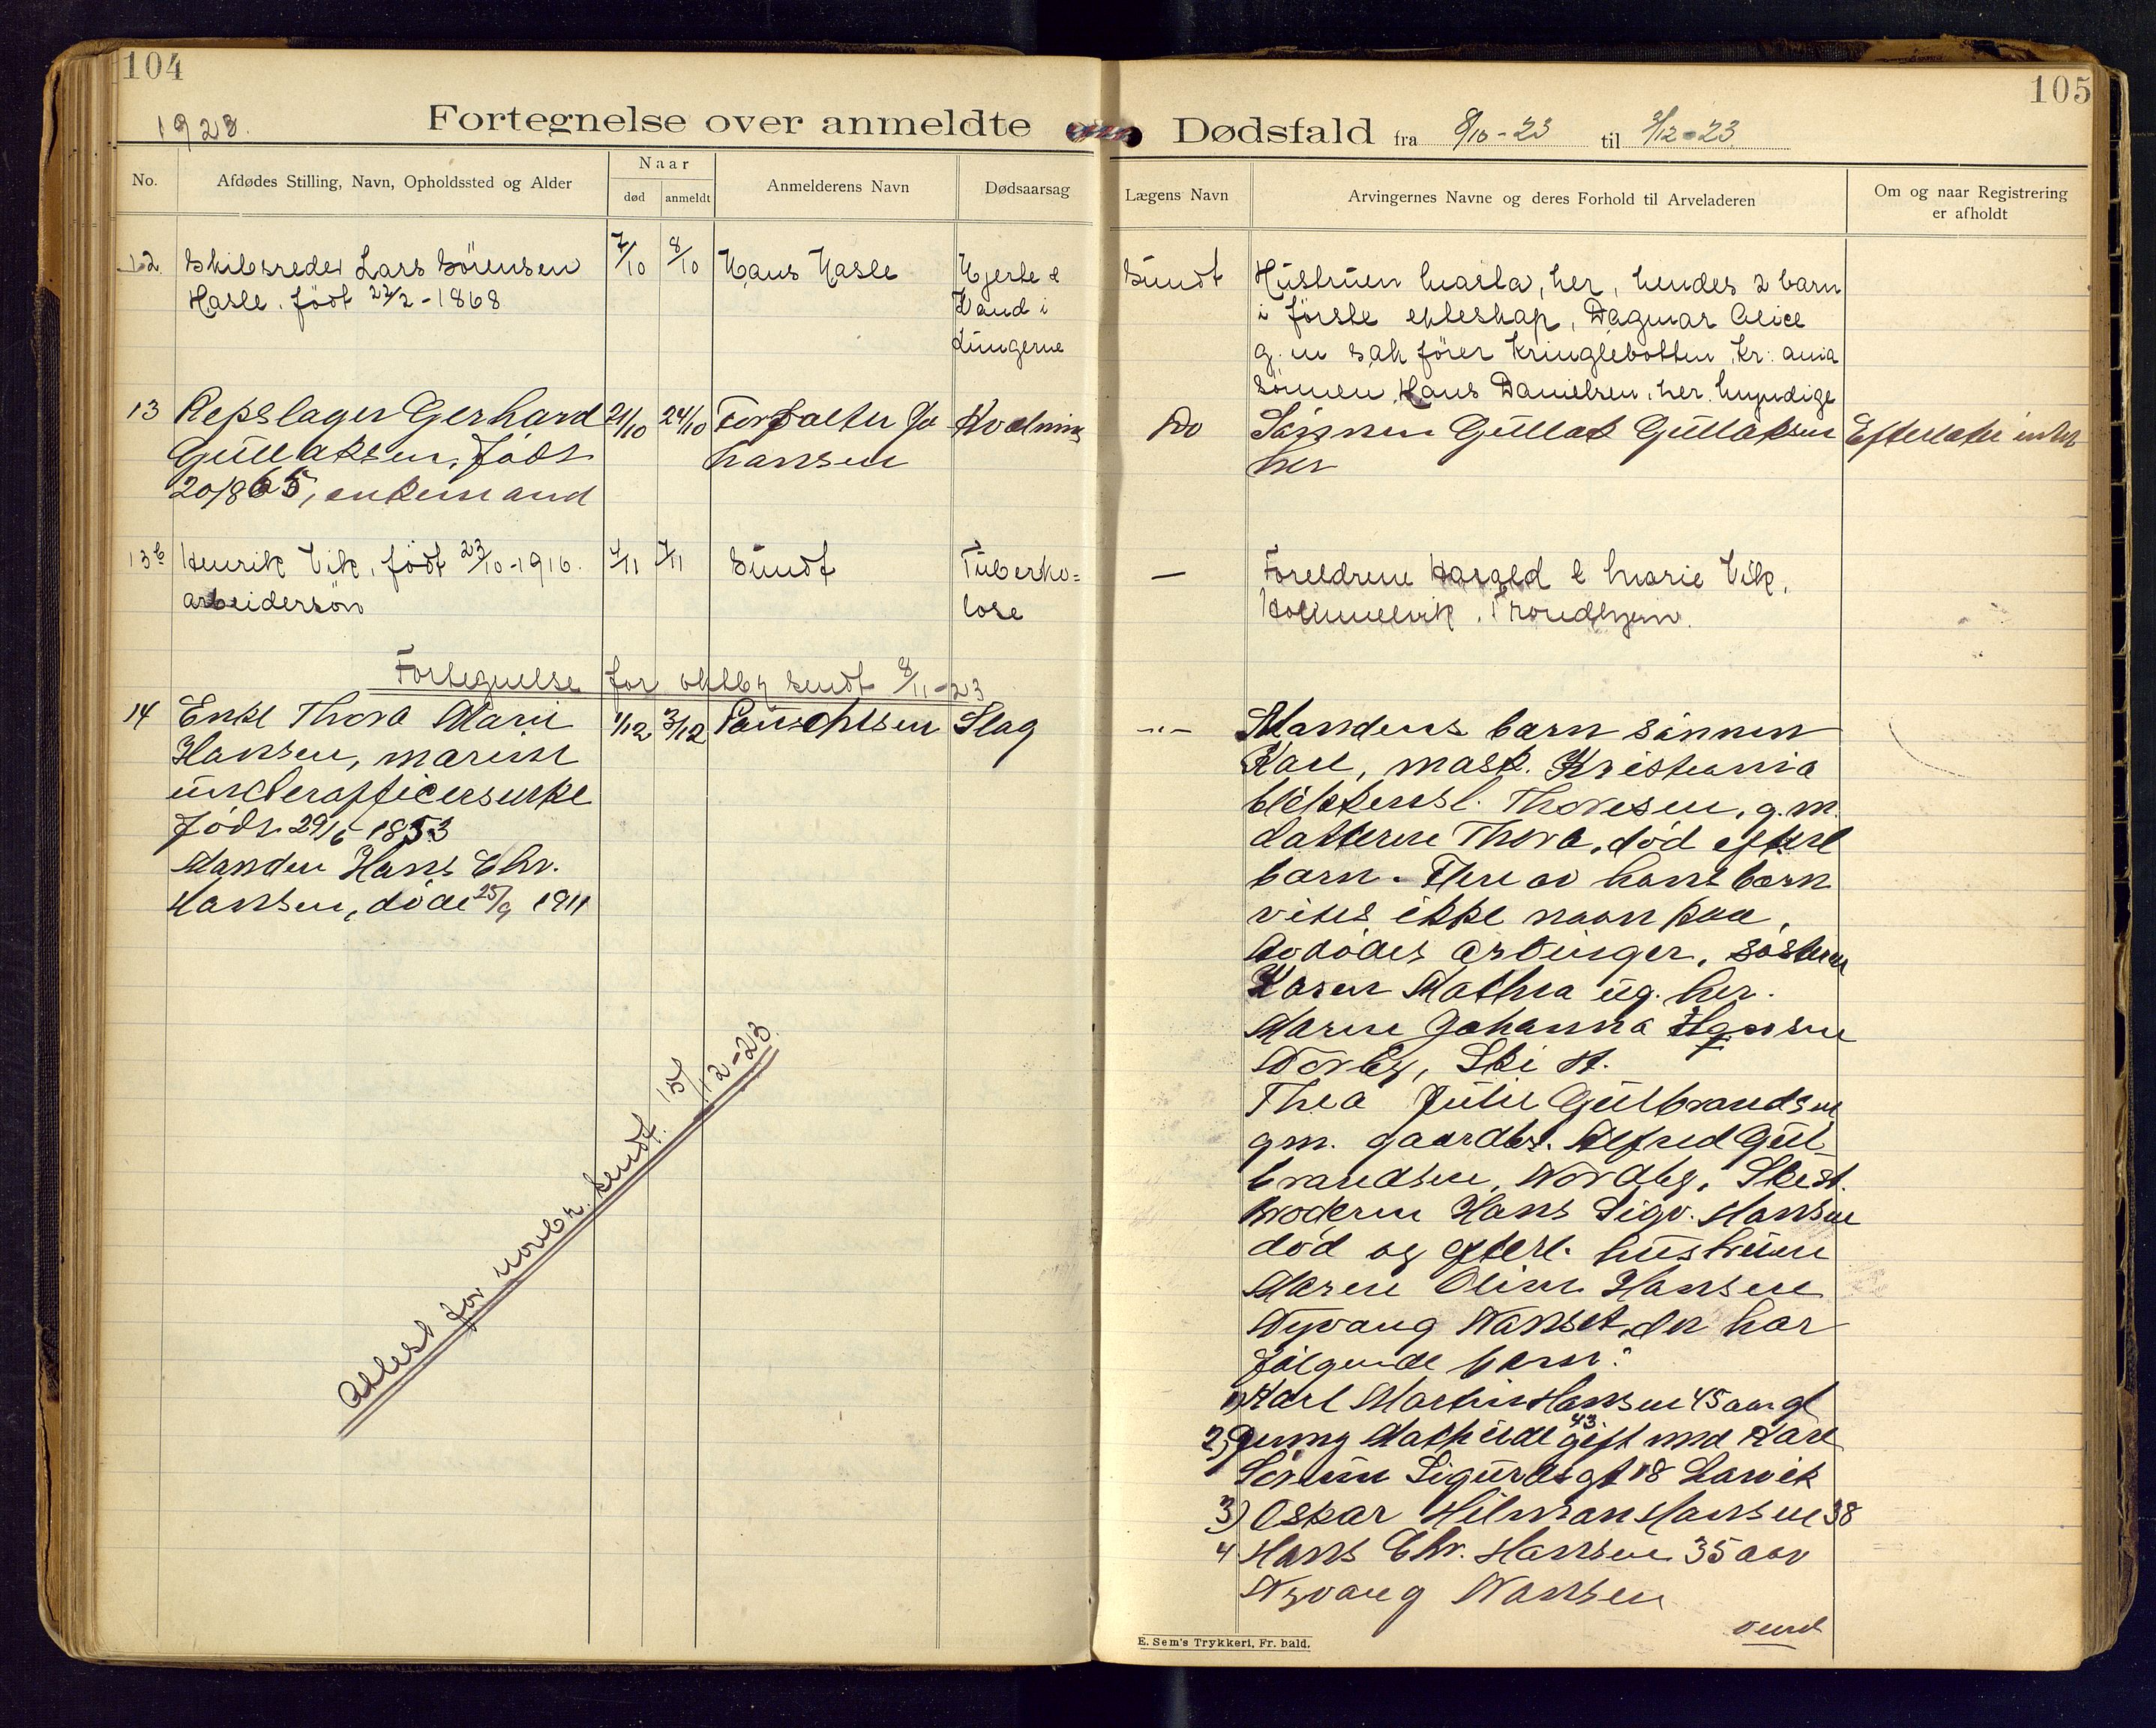 104
1923.
Fortegnelse over anmeldte
No.
Afdødes Stilling, Navn, Opholdssted og Alder
Naar
død
anmeldt
Anmelderens Navn
Dødsaarsag
12. Skibsreder Lars Sörensen 7/10 8/10 Hans Hasle Hjerte &
Hasle. född 22/2-1868 Vand i
Lungerne
13 Repslager Gerhard 21/10 24/10 Forvalter Jo
Gullaksen, född hansen
20/8 65, enkemand
13b Henrik Vik, född 23/10-1916. 4/11 7/11 Sundt Tuberko=
arbeidersön lose
Fortegnelse for oktbr sendt 8/11-23
14 Enke Thora Marie 1/12 3/12 Slag
Hansen, marine
underofficersenke
föds. 29/6 1853
Manden Hans Chr.
Hansen, döde 25/9 1911
Attest for novbr. sendt 15/12-23.
105
Dødsfald fra 8/10-23 til 3/12-23
Lægens Navn
Arvingernes Navne og deres Forhold til Arveladeren
Om og naar Registrering
er afholdt
Sundt Hustruen Marta, her, hendes 2 barn
i förste ekteskap, Dagmar Alice
g. m sakförer Kringlebotten, Kr.ania
Sönnen Hans Danielsen, her. myndige
Do Sönnen Gullak Gullaksen Efterlater intet
her
— Foreldrene Harald & Marie Vik,
Hommelvik. Trondhjem.
-"- Mandens barn sönnen
Karl, mask. Kristiania
Thoresen, g.m.
datteren Thora, död efterl
barn. Flere av hans barn
vites ikke navn paa.
Avdödes arvinger, söstren
Karen Mathea ug. her.
Maren Johanna Hansen
Nordby, Ski st.
Thea Julie Gulbrandsen
gm. gaardbr. Alfred Gul
brandsen, Nordby, Ski st.
Broderen Hans Sigv. Hansen
död og efterl. hustruen
Maren Oline Hansen
Nyvang Nanset, der har
fölgende barn:
1) Karl Martin Hansen 45 aar gl
2) Jenny Mathilde 43 gift med Karl
Sörum Sigurdsgt 18 Larvik
3) Oskar Hilman Hansen 38
4 Hans Chr. Hansen 35 aar
Nyvang Nansen
vend
E. Sem's Trykkeri, Fr. hald.